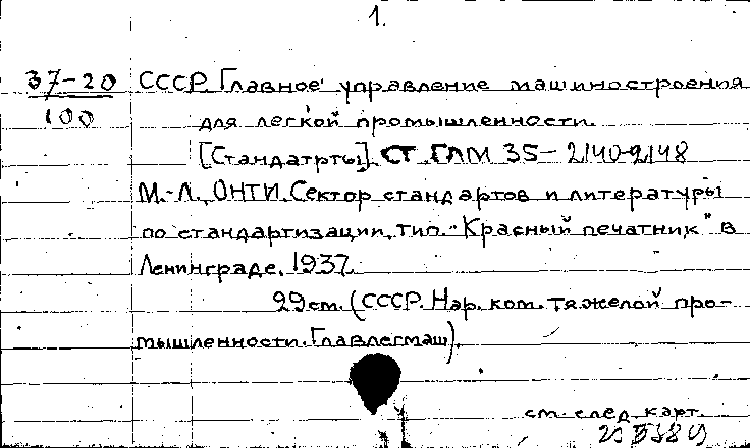 1.
37-20 СССР. Главное управление машиностроения
100 для легкой промышленности.
[Стандатрты]. СТ ГЛМ 35-2140-2148
М.-Л., ОНТИ. Сектор стандартов и литературы
по стандартизации, тип. "Красный печатник" в
Ленинграде, 1937.
29см. (СССР. Нар. ком. тяжелой про-
мышленности. Главлегмаш).
см. след. карт.